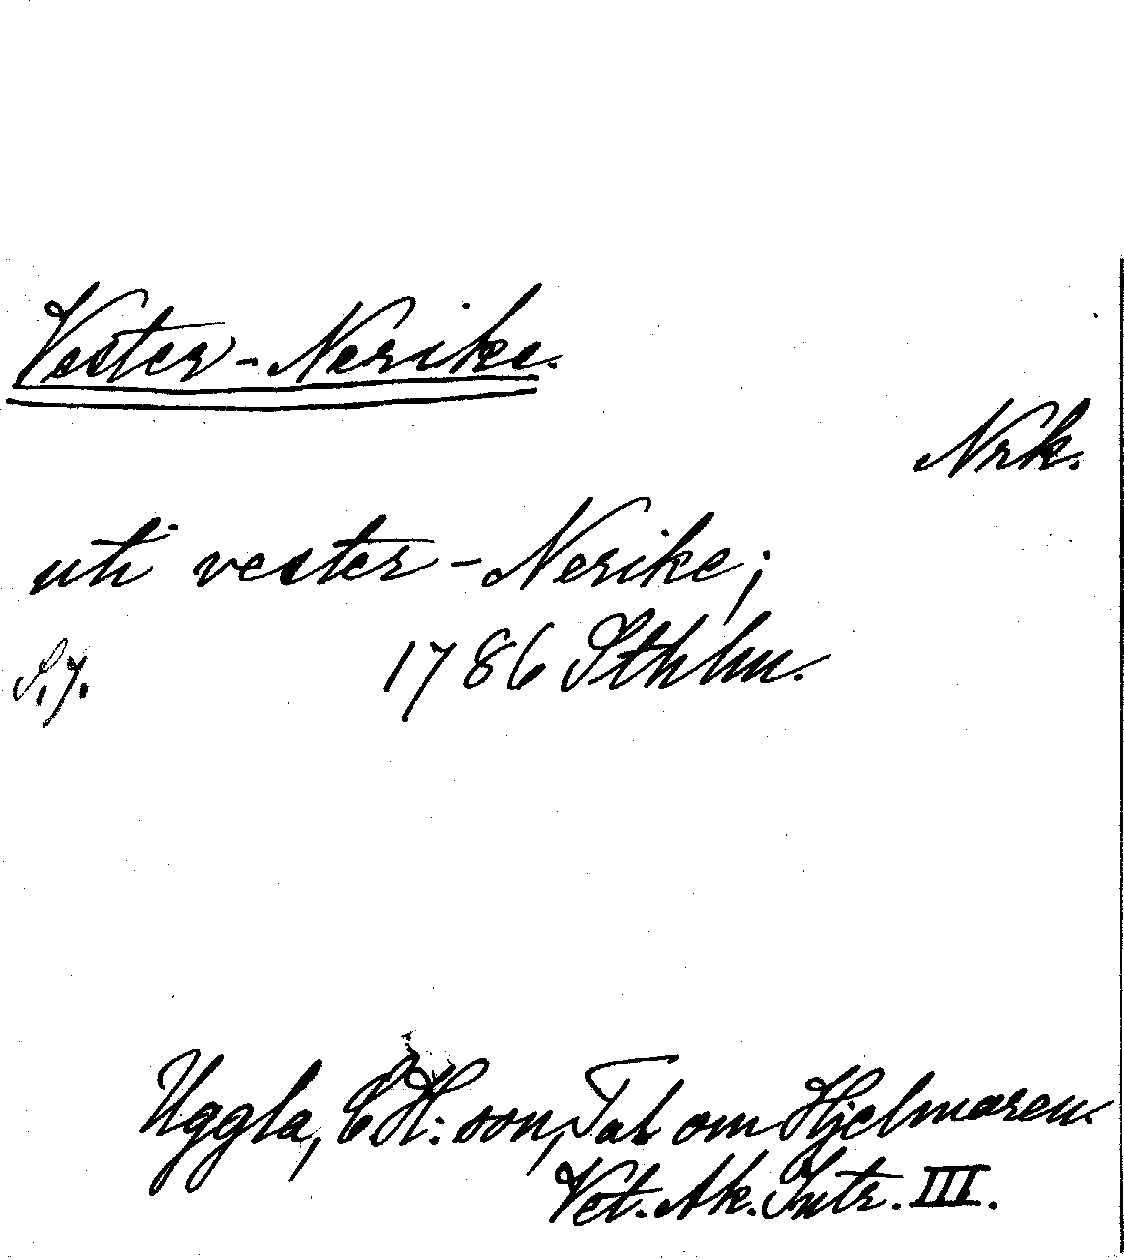 Vester-Nerike.
Nrk.
uti vester-Nerike;
S.7. 1786 Sthlm.
Uggla, C H:son, Tal om Hjelmaren.
Vet. Ak. Intr. III.